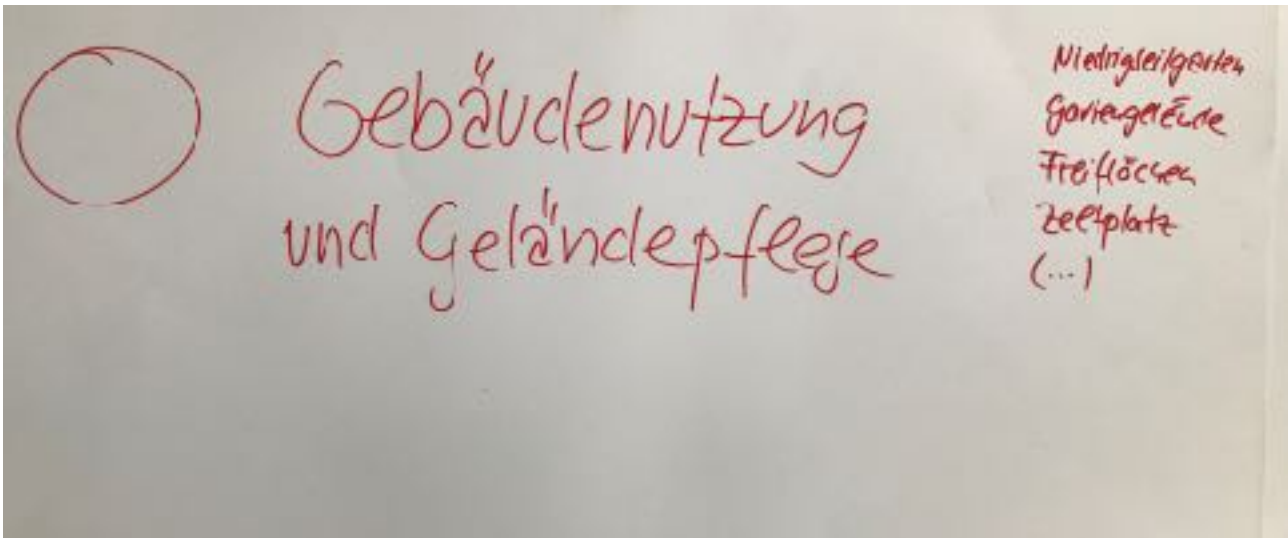 Gebäudenutzung
und Geländepflege
Niedrigseilgarten
Gartengelände
Freiflächen
Zeltplatz
(...)